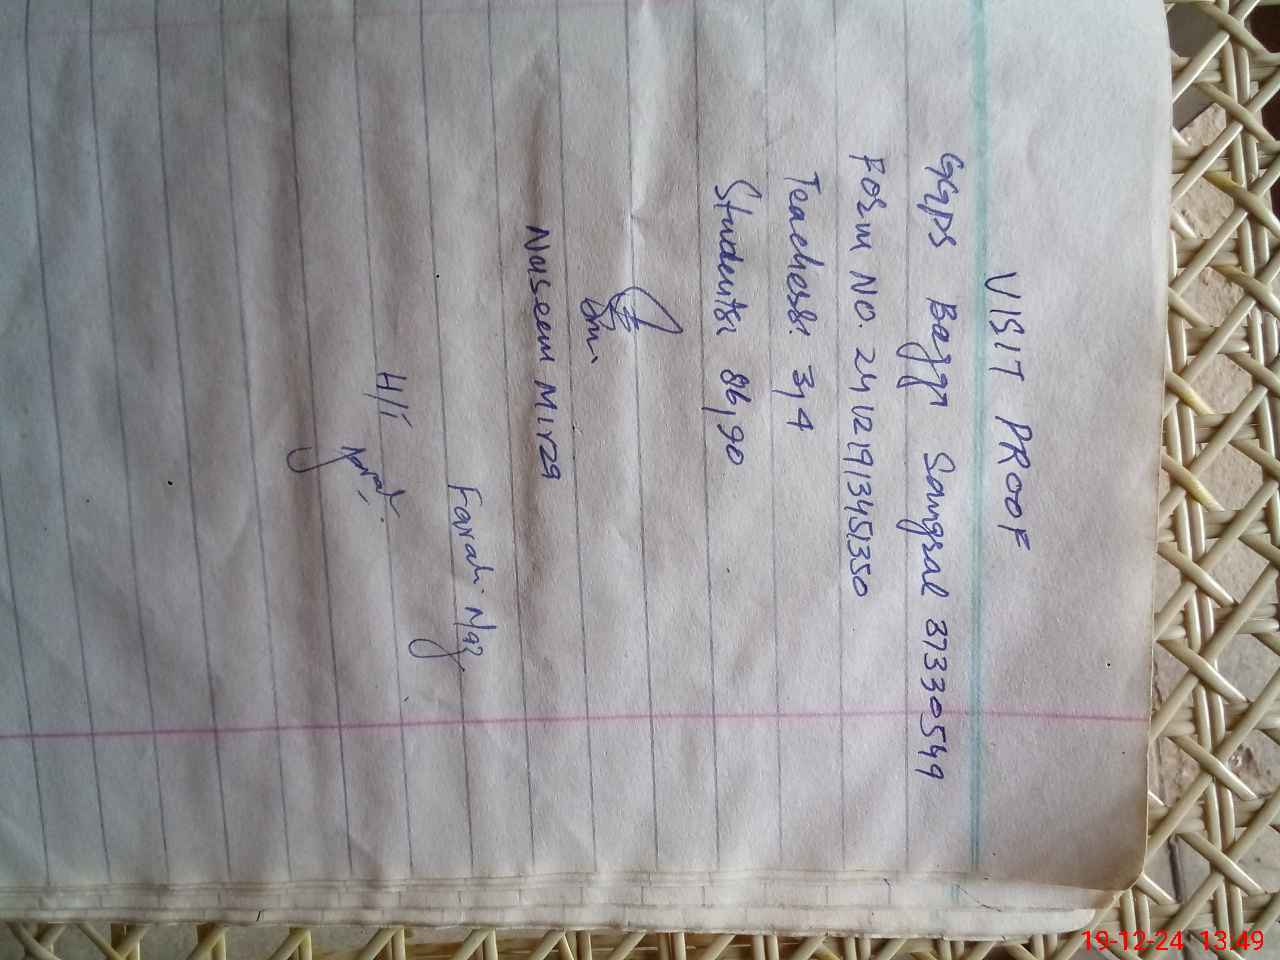 VISIT PROOF
GGPS Bagga Sangral 37330549
Form No. 24121913451350
Teachers: 3,4
Students: 86,90
Naseem Mirza
Farah Naz
H/T
19-12-24 13:49